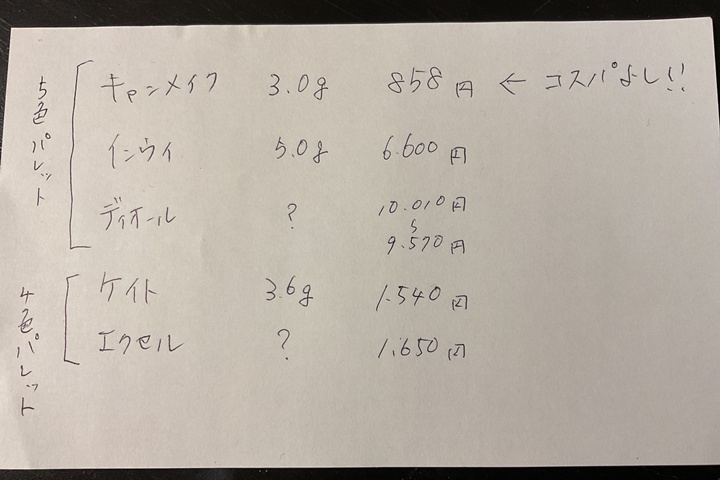 5色パレット
キャンメイク 3.0g 858円 ← コスパよし!!
インウイ 5.0g 6.600円
ディオール ? 10.010円
〜
9.570円
4色パレット
ケイト 3.6g 1.540円
エクセル ? 1.650円